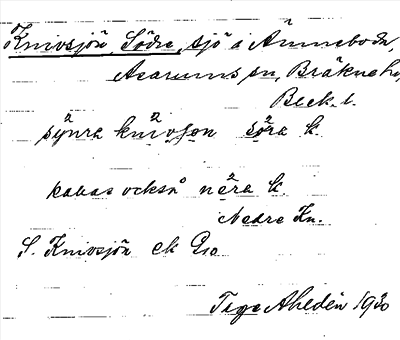 Knivsjön, Södre, sjö i Ämneboda,
Asarums sn, Bräkne hd,
Blek. l.
sy̆nra knivson söra k.
kallas också nĕra k.
Nedre Kn.
S. Knivsjön ek Geo
Tage Ahldén 1930